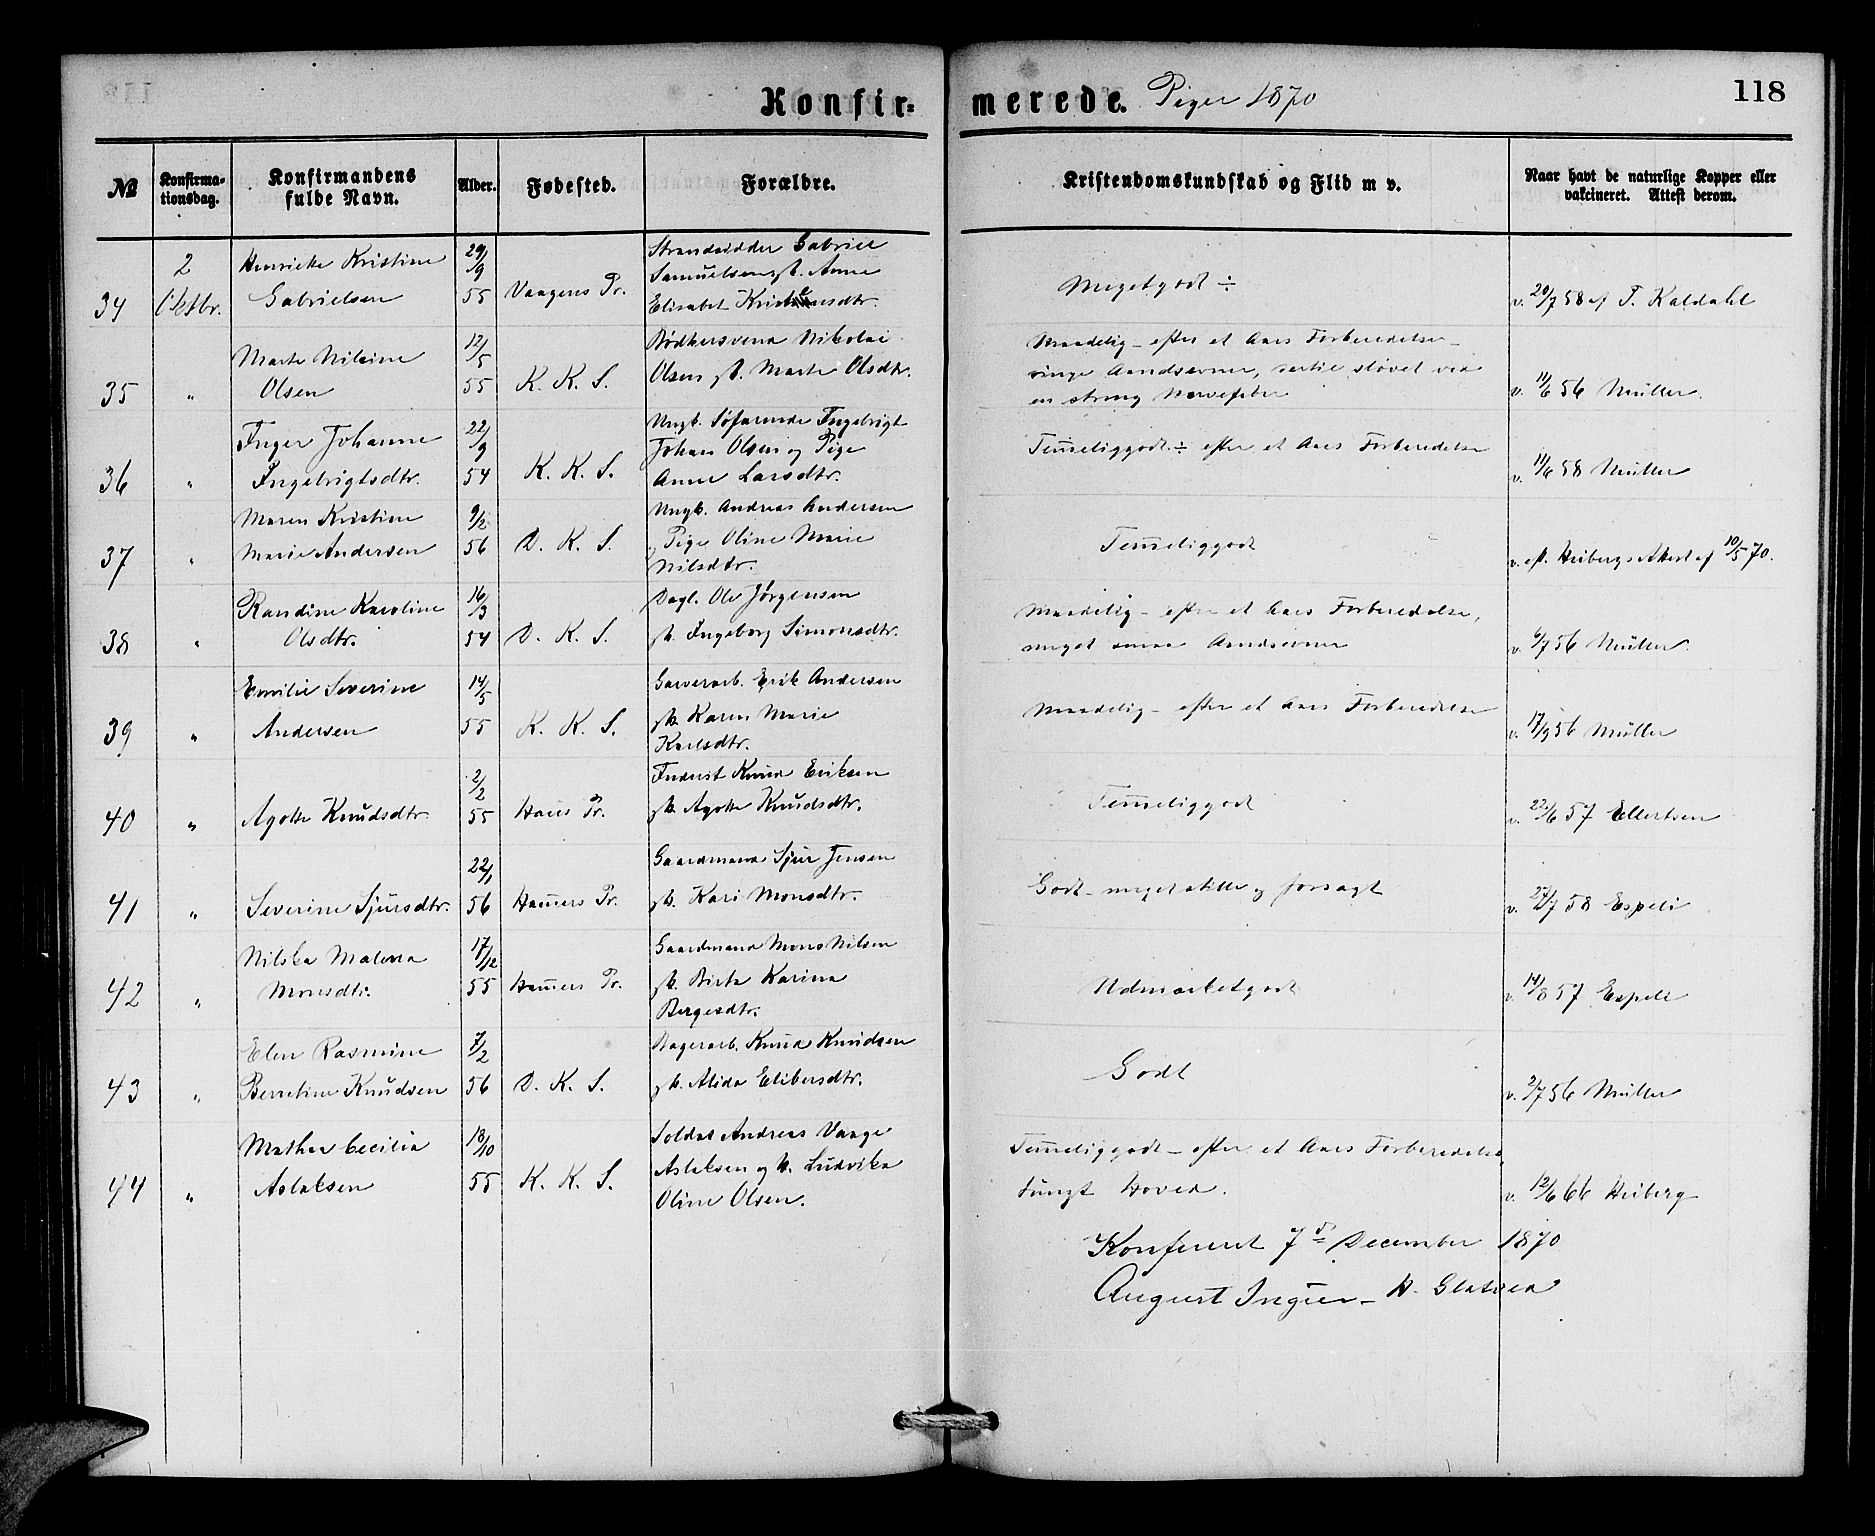 Konfirmerede. Piger 1870
118
№ Konfirmationsdag. Konfirmandens fulde Navn. Alder. Fødested. Forældre. Kristendomskundskab og Flid m v. Naar havt de naturlige Kopper eller vakcineret. Attest derom.
2 Henriette Kristine 29/9 Strandsidder Gabriel
Samuelsen gt. Anne
34 Oktbr. Gabrielsen 55 Vaagens Pr. Elisabet Megetgodt ÷ v. 20/7 58 af T. Kaldahl
Marte Nilsine 12/5 Bødkersvend Nikolai Maadelig - efter et Aars Forberedelse -
35 " Olsen 55 K. K. S. Olsen gt. Marte Olsdtr. ringe Aandsevner, sløvet ved
en streng Nervefeber v. 11/6 56 Müller.
Inger Johanne 22/9 Ungk. Søfarende Ingebrigt
Johan Olsen og Pige Temeliggodt ÷ efter et Aars Forberedelse
36 " Ingebrigtsdtr. 54 K. K. S. Anne Larsdtr. v. 11/6 58 Müller
Maren Kristine 9/2 Ungk. Andreas Andersen
37 " Marie Andersen 56 D. K. S. og Pige Oline Marie Temeliggodt v. eft. Heibergs Attest af 10/5 70.
Nilsdtr.
Randine Karoline 16/3 Dagl. Ole Jørgensen Maadelig - efter et Aars Forberedelse,
38 " Olsdtr. 54 D. K. S. gt. Ingeborg Simonsdtr. meget smaa Aandsevner v. 6/7 56 Müller.
Emilie Severine 14/5 Garverarb. Erik Andersen Maadelig - efter et Aars Forberedelse
39 " Andersen 55 K. K. S. gt. Karen Marie v. 17/9 56 Müller
Karlsdtr.
2/2 Inderst Knud Eriksen
40 " Agothe Knudsdtr. 55 Haus Pr. gt. Agothe Knudsdtr. Temeliggodt v. 22/6 57 Ellertsen
22/1 Gaardmand Sjur Jensen
41 " Severine Sjursdtr. 56 Hamers Pr. gt. Kari Monsdtr. Godt - meget stille og forsagt v. 27/7 58 Espeli
Nilska Malena 17/12 Gaardmand Mons Nilsen
42 " Monsdtr. 55 Hamers Pr. gt. Birte Karina Udmærketgodt v. 14/8 57 Espeli
Bergesdtr.
Elen Rasmine 7/2 Bagerarb. Knud Knudsen
43 " Berretine Knudsen 56 D. K. S. gt. Alida Elibersdtr. Godt v. 2/7 56 Müller
Mathea Cecilia 18/10 Soldat Andreas Vaage Temeliggodt - efter et Aars Forberedelse,
44 " Aslaksen 55 K. K. S. Aslaksen og h. Ludvika tungt Hoved. v. 12/6 66 Heiberg
Oline Olsen.
Konfereret 7de December 1870
August Ingier - H. Glatved